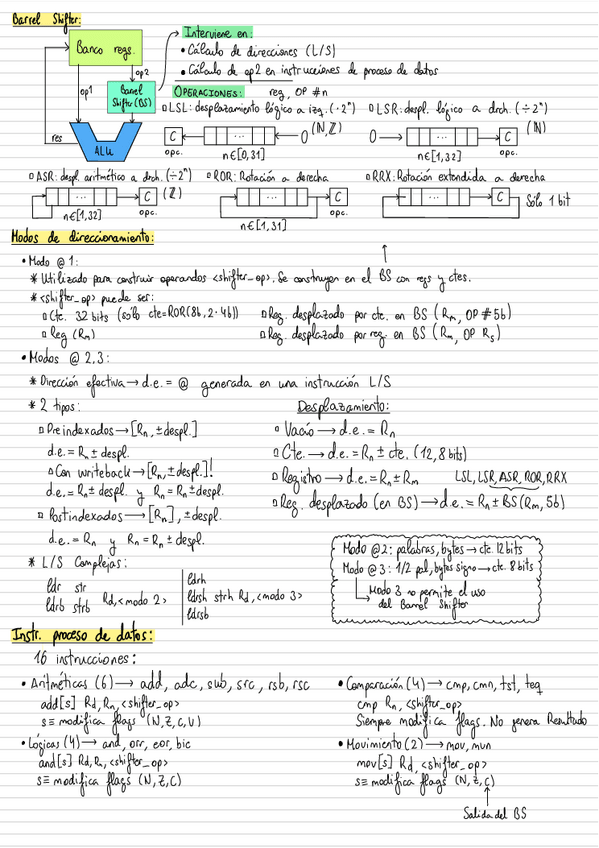 Barrel Shifter:
Banco regs.
op1
op2
Barrel
Shifter (BS)
res
ALU
Interviene en:
• Cálculo de direcciones (L/S)
• Cálculo de op2 en instrucciones de proceso de datos
OPERACIONES: reg, OP #n
LSL: desplazamiento lógico a izq. (·2ⁿ)
C ... 0 (ℕ,ℤ)
opc. n∈[0,31]
LSR: despl. lógico a drch. (÷2ⁿ)
0 ... C (ℕ)
n∈[1,32] opc.
ASR: despl. aritmético a drch. (÷2ⁿ)
... C (ℤ)
n∈[1,32] opc.
ROR: Rotación a derecha
... C
n∈[1,31] opc.
RRX: Rotación extendida a derecha
... C Sólo 1 bit
Modos de direccionamiento:
• Modo @ 1:
* Utilizado para construir operandos <shifter_op>. Se construyen en el BS con regs y ctes.
* <shifter_op> puede ser:
Cte. 32 bits (sólo cte=ROR(8b, 2·4b))
Reg (Rm)
Reg. desplazado por cte. en BS (Rm, OP #5b)
Reg. desplazado por reg. en BS (Rm, OP Rs)
• Modos @ 2,3:
* Dirección efectiva → d.e. = @ generada en una instrucción L/S
* 2 tipos:
Preindexados → [Rn, ± despl.]
d.e. = Rn ± despl.
Con writeback → [Rn, ± despl.]!
d.e. = Rn ± despl. y Rn = Rn ± despl.
Postindexados → [Rn], ± despl.
d.e. = Rn y Rn = Rn ± despl.
Desplazamiento:
Vacío → d.e. = Rn
Cte. → d.e. = Rn ± cte. (12, 8 bits)
Registro → d.e. = Rn ± Rm
LSL, LSR, ASR, ROR, RRX
Reg. desplazado (en BS) → d.e. = Rn ± BS(Rm, 5b)
* L/S Complejas:
ldr str
ldrb strb
Rd, <modo 2>
ldrh
ldrsh strh Rd, <modo 3>
ldrsb
Modo @2: palabras, bytes → cte. 12 bits
Modo @3: 1/2 pal, bytes signo → cte. 8 bits
Modo 3 no permite el uso
del Barrel Shifter
Instr. proceso de datos:
16 instrucciones:
• Aritméticas (6) → add, adc, sub, src, rsb, rsc
add[s] Rd, Rn, <shifter_op>
s ≡ modifica flags (N, Z, C, V)
• Lógicas (4) → and, orr, eor, bic
and[s] Rd, Rn, <shifter_op>
s ≡ modifica flags (N, Z, C)
• Comparación (4) → cmp, cmn, tst, teq
cmp Rn, <shifter_op>
Siempre modifica flags. No genera Resultado
• Movimiento (2) → mov, mvn
mov[s] Rd, <shifter_op>
s ≡ modifica flags (N, Z, C)
Salida del BS